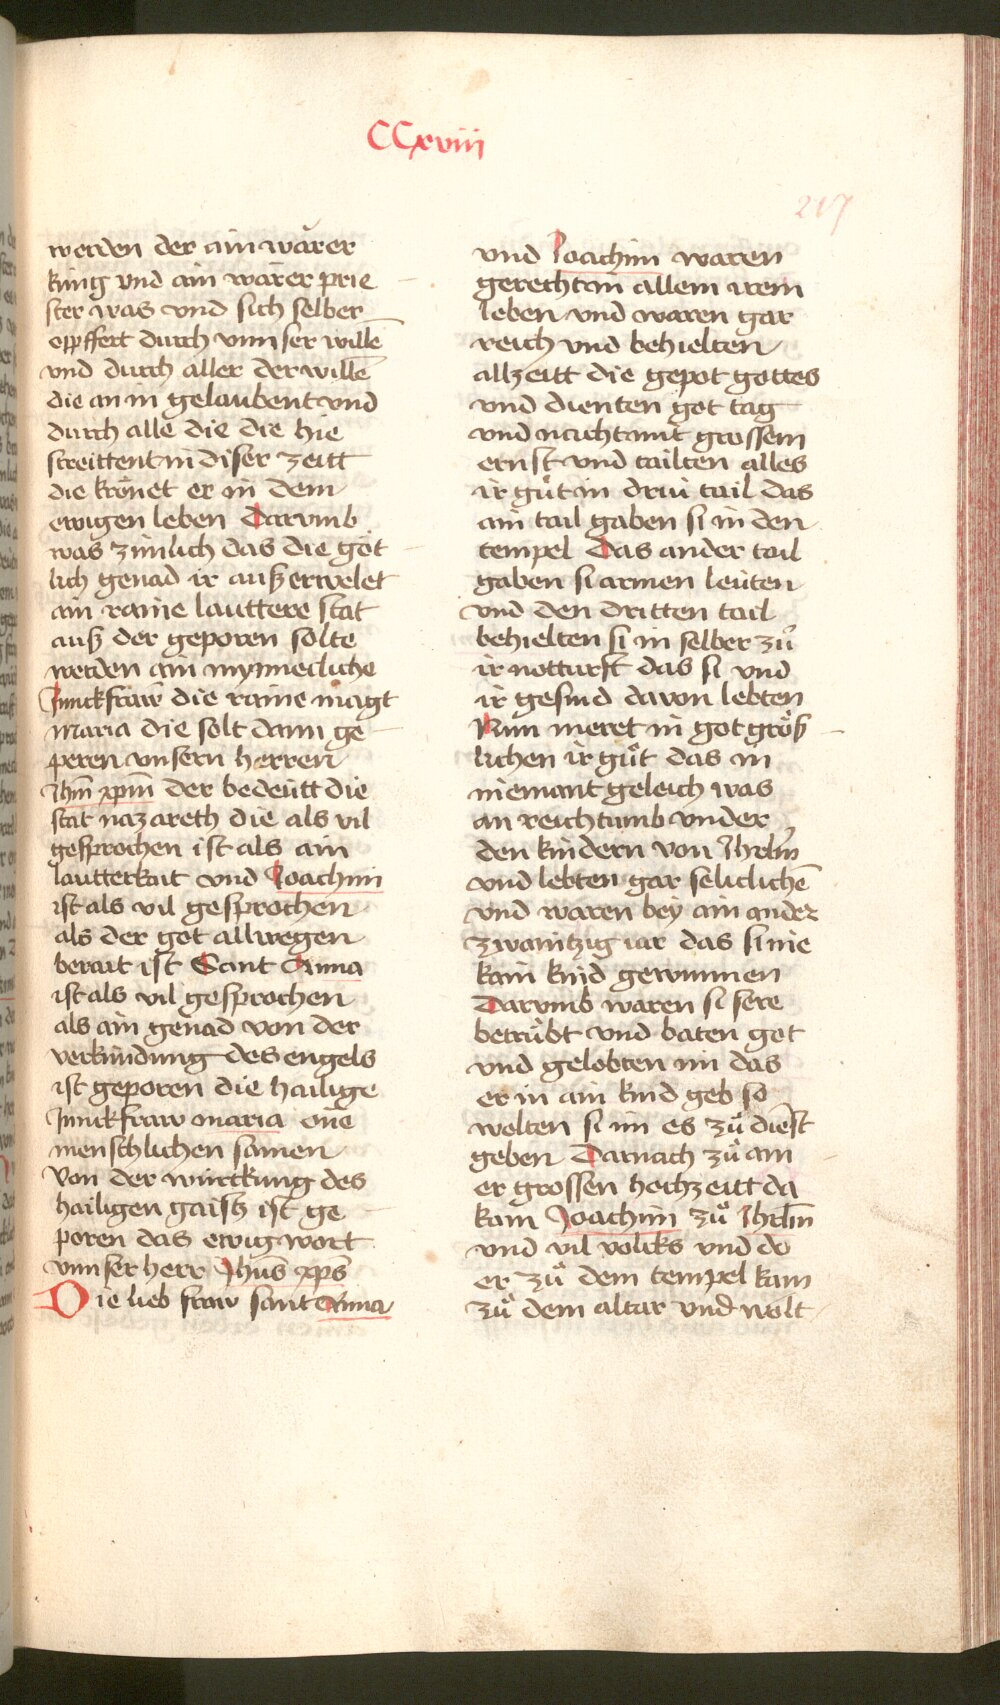 CCxviii
217
werden der ain warer
king vnd ain warer prie
ster was vnd sich selber
opffert durch vnnser wille̅
vnd durch aller der wille̅
die an in gelaubent vnd
durch alle die die hie
streittent in diser zeitt
die krönet er in dem
ewigen leben Darumb
was zimlich das die göt
lich genad ir außerwelet
ain raine lauttere stat
auß der geporen solte
werden ain mynnecliche
Junckfraw die raine magt
maria die solt dann ge
peren vnsern herren
Jhm̅ xpm̅ der bedeutt die
stat nazareth die als vil
gesprochen ist als ain
lautterkait vnd Joachim
ist als vil gesprochen
als der got allwegen
berait ist Sant Anna
ist als vil gesprochen
als ain genad von der
verkündung des engels
ist geporen die hailige
Junckfraw maria one
menschlichen samen
Von der würckung des
hailigen gaists ist ge
poren das ewig wort
vnnser herr Jhus xps̅
Die lieb fraw sant Anna
und Joachim waren
gerecht in allem irem
leben vnd waren gar
reich vnd behielten
allzeitt die gepot gottes
vnd dienten got tag
vnd nacht mit grossem
ernst vnd tailten alles
ir gůt in drui tail das
ain tail gaben si in den
tempel Das ander tail
gaben si armen leuten
vnd den dritten tail
behielten si in selber zů
ir notturft das si vnd
ir gesind davon lebten
Nun meret in got größ
lichen ir gůt das in
niemant geleich was
an reichtumb vnder
den kindern von Jhrlm̅
vnd lebten gar selicliche̅
vnd waren bey ain ander
zwaintzig iar das si nie
kain kind gewunnen
Darumb waren si sere
betrübt vnd baten got
vnd gelobten im das
er in ain kind geb so
wolten si im es zů die̅st
geben Darnach zů ain
er grossen hochzeitt da
kam Joachim zů Jhrlm̅
vnd vil volcks vnd do
er zů dem tempel kam
zů dem altar vnd wolt